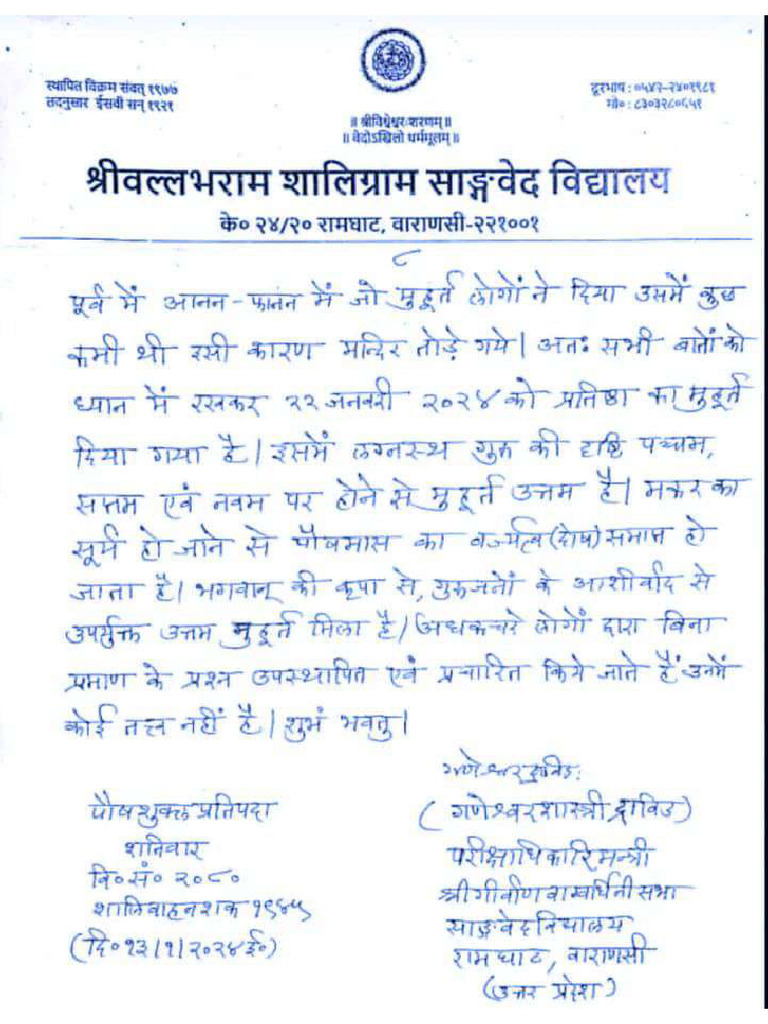 स्थापित विक्रम संवत् १९७७
तदनुसार ईसवी सन् १९२१
दूरभाष : ०५४२-२४०१९८१
मो० : ८३०३२८०६५१
॥ श्रीविश्वेश्वरः शरणम् ॥
॥ वेदोऽखिलो धर्ममूलम् ॥
श्रीवल्लभराम शालिग्राम साङ्गवेद विद्यालय
के० २४/२० रामघाट, वाराणसी-२२१००१
८
पूर्व में आनन-फानन में जो मुहूर्त लोगों ने दिया उसमें कुछ
कमी थी इसी कारण मन्दिर तोड़े गये। अतः सभी बातों को
ध्यान में रखकर २२ जनवरी २०२४ को प्रतिष्ठा का मुहूर्त
दिया गया है। इसमें लग्नस्थ गुरु की दृष्टि पञ्चम,
सप्तम एवं नवम पर होने से मुहूर्त उत्तम है। मकर का
सूर्य हो जाने से पौषमास का वर्ज्यत्व (दोष) समाप्त हो
जाता है। भगवान् की कृपा से, गुरुजनों के आशीर्वाद से
उपर्युक्त उत्तम मुहूर्त मिला है। अधकचरे लोगों द्वारा बिना
प्रमाण के प्रश्न उपस्थापित एवं प्रचारित किये जाते हैं उनमें
कोई तत्त्व नहीं है। शुभं भवतु।
गणेश्वर द्राविडः
पौषशुक्ल प्रतिपदा
शनिवार
वि० सं० २०८०
शालिवाहनशक १९४५
(दि० १३।१।२०२४ ई०)
(गणेश्वरशास्त्री द्राविड)
परीक्षाधिकारिमन्त्री
श्रीगीर्वाणवाग्वर्धिनी सभा
साङ्गवेदविद्यालय
रामघाट, वाराणसी
(उत्तर प्रदेश)